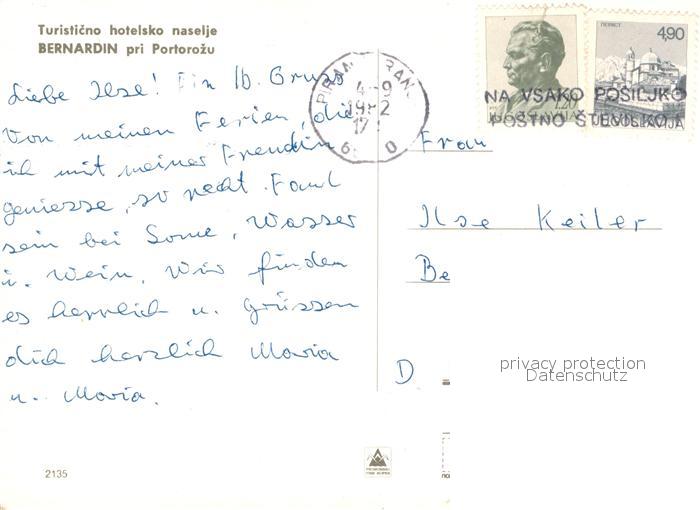 Turistično hotelsko naselje
BERNARDIN pri Portorožu
Liebe Ilse! Ein lb. Gruss
von meinen Ferien, die
ich mit meiner Freudin
geniesse, so recht Faul
sein bei Sonne, Wasser
u. Wein. Wir finden
es herrlich u. grüssen
dich herzlich Maria
u. Maria.
2135
PIRAN PIRANO
4-9
1982
17
NA VSAKO POŠILJKO
POŠTNO ŠTEVILKO!
1,20
4,90
Frau
Ilse Keiler
Be
D
privacy protection
Datenschutz